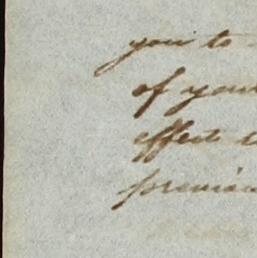 you to
of your
effect
previou